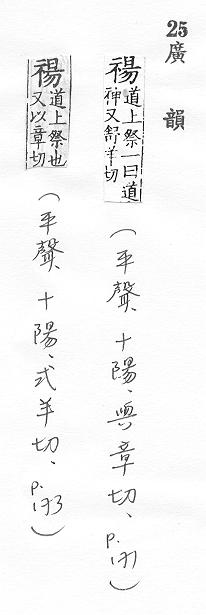 25 廣韻
禓 道上祭一曰道神又舒羊切 (平聲、十陽、與章切、p.171)
禓 道上祭也又以章切 (平聲、十陽、式羊切、p.173)